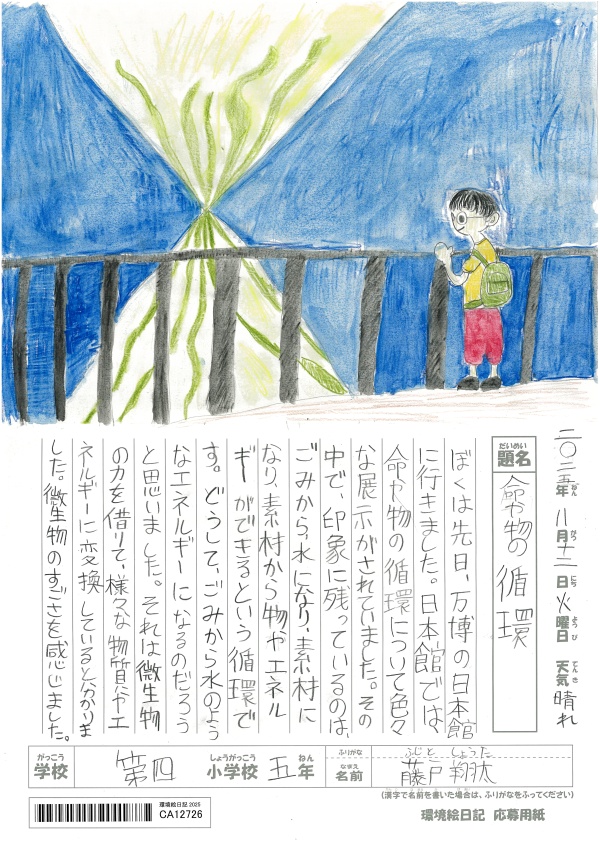 二〇二五年ねん 八月がつ 十二日にち 火曜日ようび 天気てんき 晴れ
題名だいめい 命や物の循環
ぼくは先日、万博の日本館
に行きました。日本館では、
命や物の循環について色々
な展示がされていました。その
中で、印象に残っているのは、
ごみから、水になり、素材に
なり、素材から物やエネル
ギーができるという循環で
す。どうして、ごみから水のよう
なエネルギーになるのだろう
と思いました。それは微生物
の力を借りて、様々な物質やエ
ネルギーに変換していると分かりま
した。微生物のすごさを感じました。
がっこう しょうがっこう ねん ふりがな ふじと しょうた
学校 第四 小学校 五年 なまえ 名前 藤戸 翔太
(漢字で名前を書いた場合は、ふりがなをふってください)
環境絵日記 2025
CA12726
環境絵日記 応募用紙